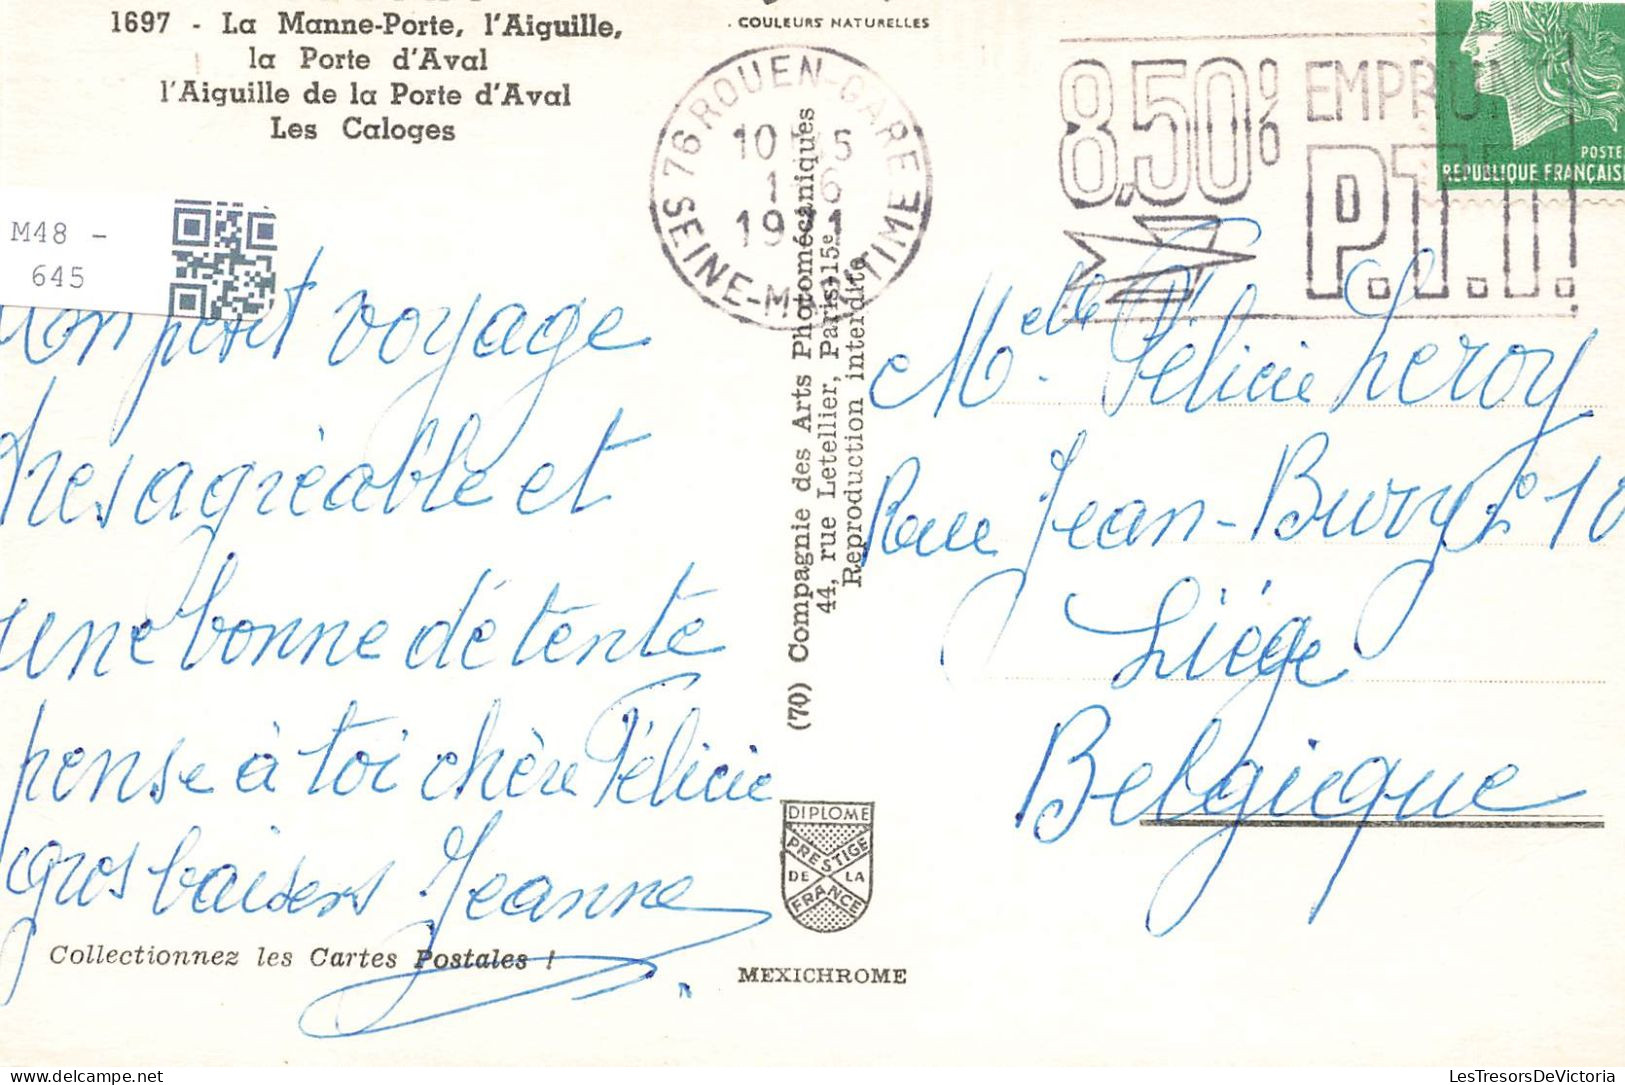 1697 - La Manne-Porte, l'Aiguille,
la Porte d'Aval
l'Aiguille de la Porte d'Aval
Les Caloges
. COULEURS NATURELLES
M48 -
645
76 ROUEN-GARE
SEINE-MARITIME
1971
8,50% EMPRUNT
P.T.T.
POSTE
REPUBLIQUE FRANÇAISE
Mon petit voyage
très agréable et
une bonne détente
pense à toi chère Félicie
gros baisers Jeanne
(70) Compagnie des Arts Photomécaniques
44, rue Letellier, Paris-15e
Reproduction interdite
Melle. Félicie Leroy
Rue Jean-Bury 10
Liége
Belgique
DIPLOME
PRESTIGE
DE LA
FRANCE
Collectionnez les Cartes Postales !
MEXICHROME
delcampe.net
LesTresorsDeVictoria